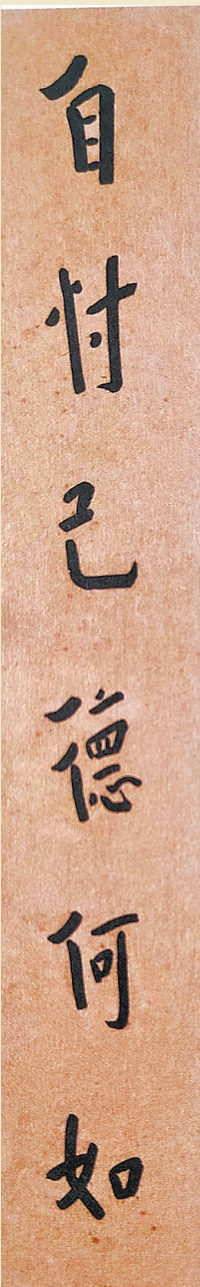 自忖己德何如